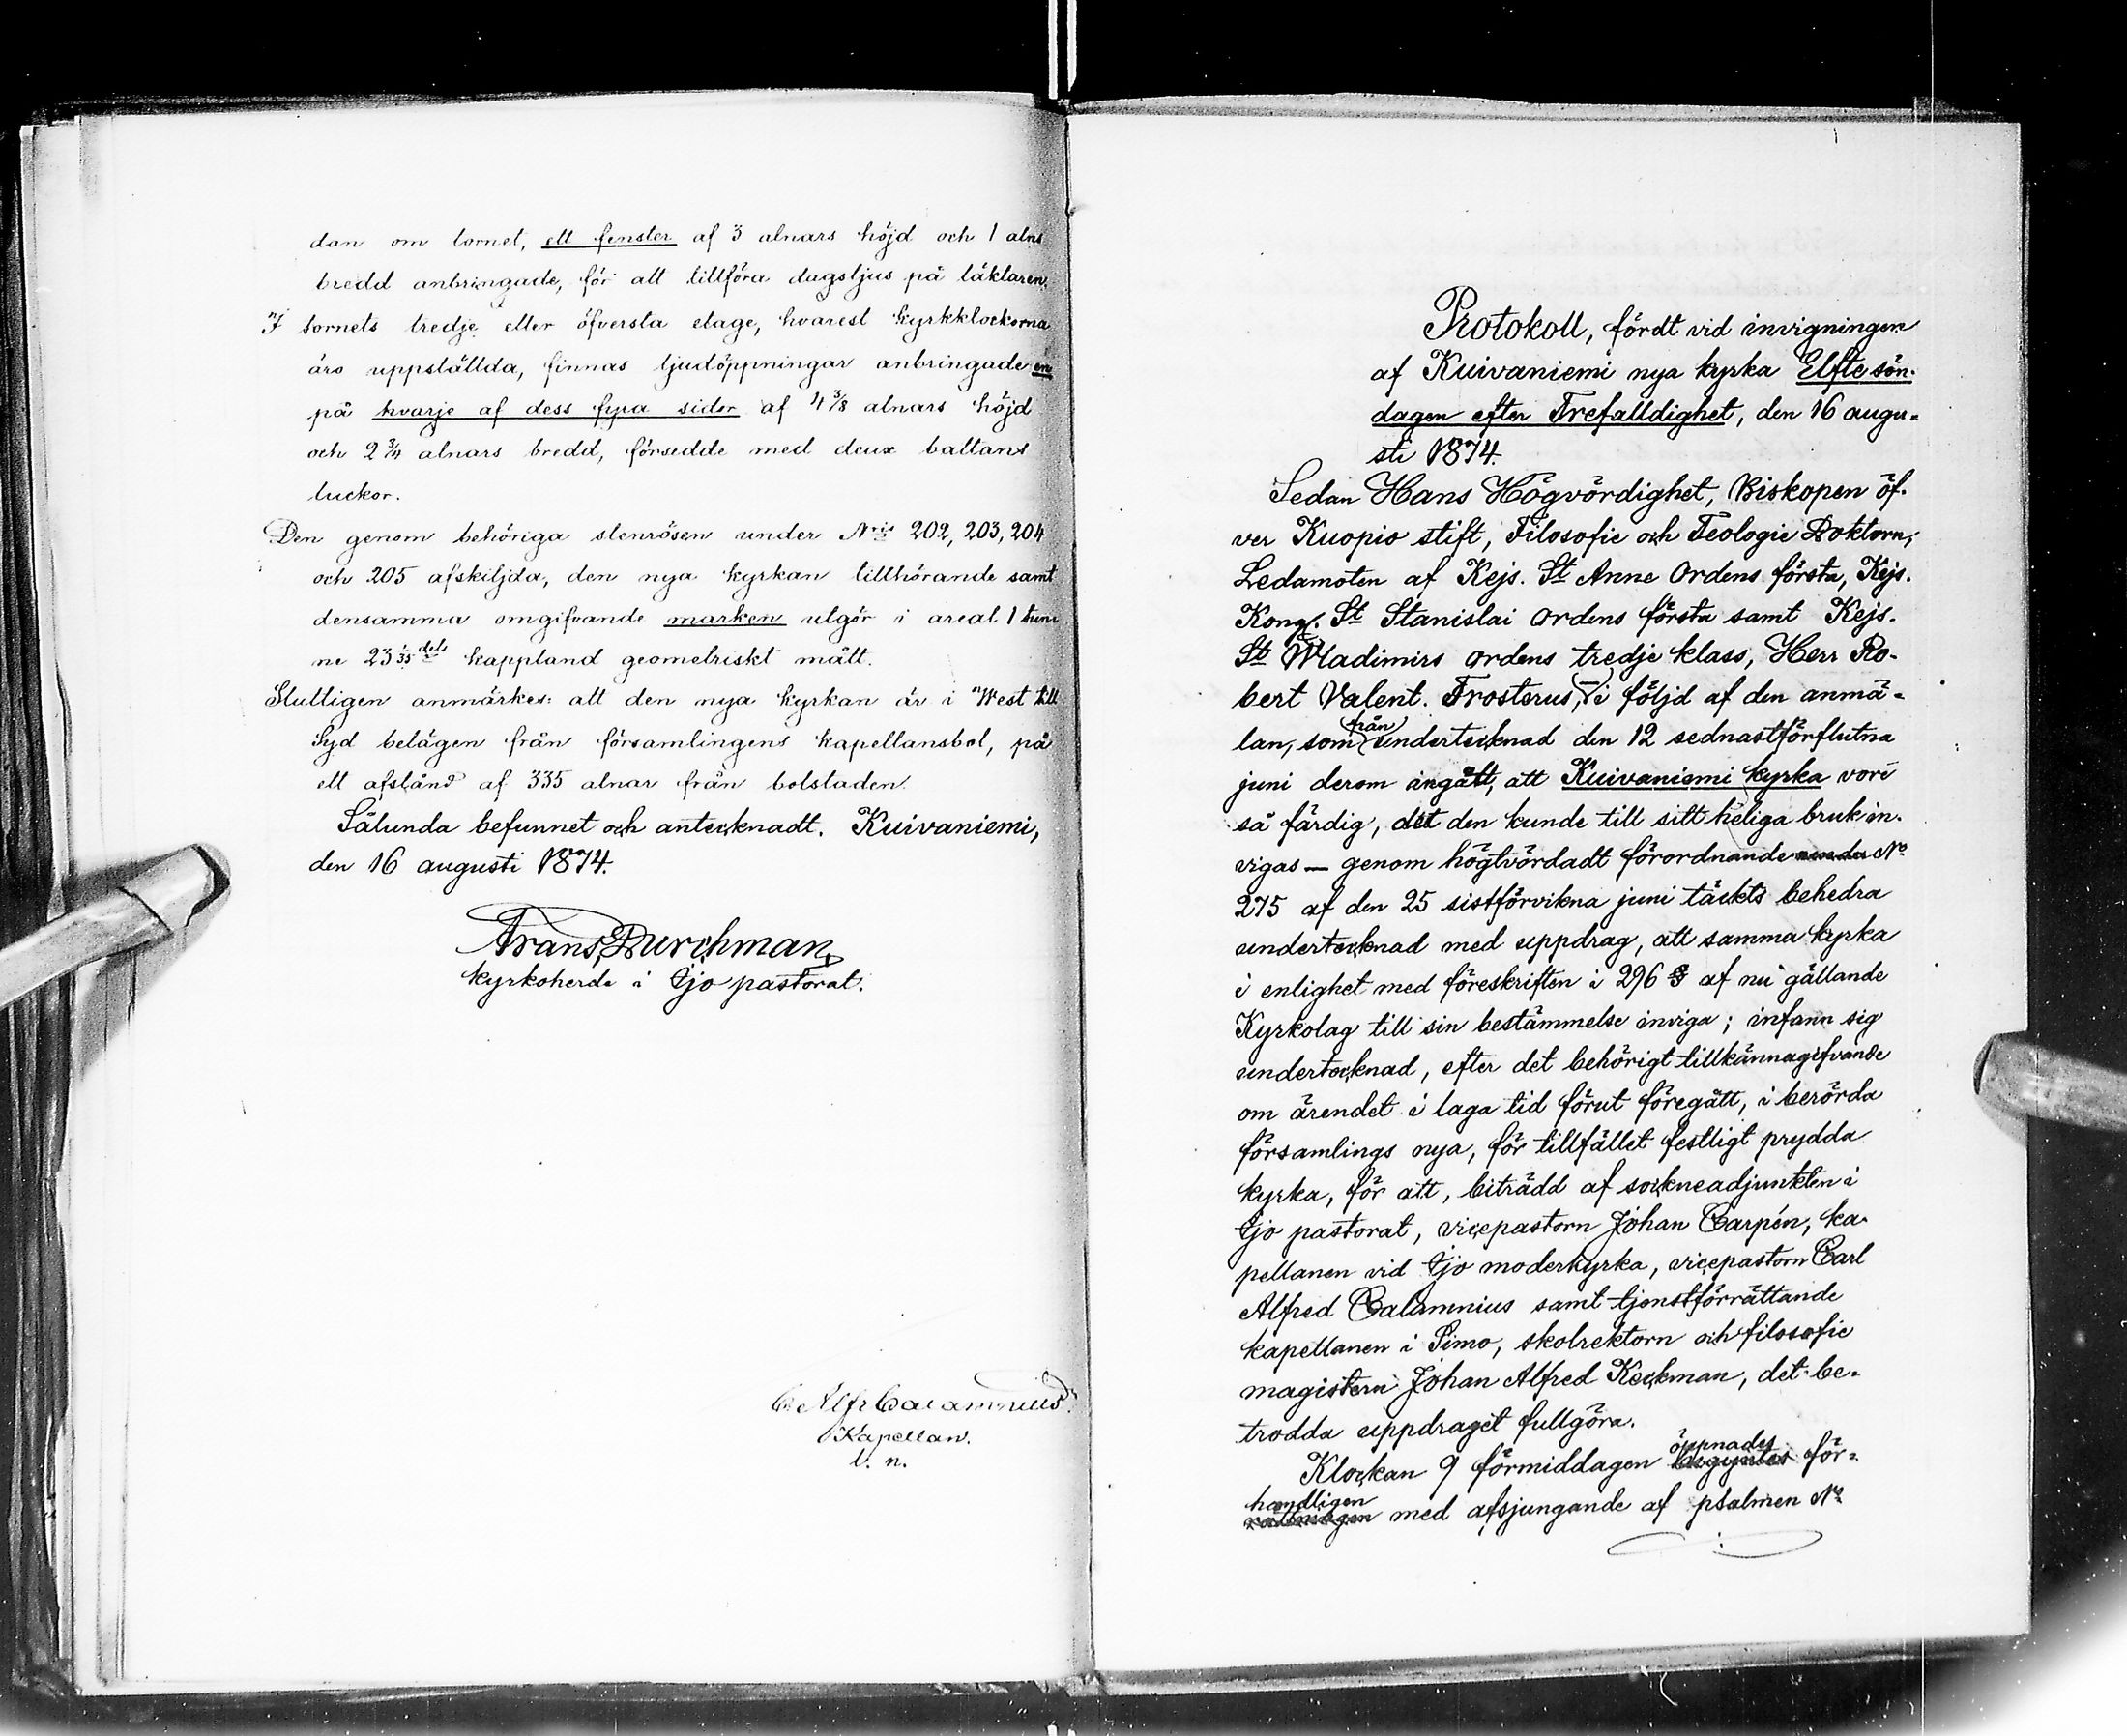 dan om tornet, ett fenster af 3 alnars höjd och 1 alns
bredd anbringade, för att tillföra dagsljus på läktaren.
I tornets tredje eller öfversta etage, hvarest kyrkklockorna
äro uppställda, finnas ljudöppningar anbringade en
på hvarje af dess fyra sidor af 4 3/8 alnars höjd
och 2 3/4 alnars bredd, försedde med deux battans
luckor.
Den genom behöriga stenrösen under N:ris 202, 203, 204
och 205 afskiljda, den nya kyrkan tillhörande samt
densamma omgifvande marken utgör i areal 1 tun
ne 23 1/35 dels kappland geometriskt mått.
Slutligen anmärkes: att den nya kyrkan är i West till
Syd belägen från församlingens kapellansbol, på
ett afstånd af 335 alnar från bolstaden.
Sålunda befunnet och antecknadt. Kuivaniemi,
den 16 augusti 1874.
Frans Durchman,
kyrkoherde i Ijo pastorat.
C. Alfr Calamnius.
Kapellan.
v. n.
Protokoll, fördt vid invigningen
af Kuivaniemi nya kyrka Elfte sön-
dagen efter Trefalldighet, den 16 augu-
sti 1874.
Sedan Hans Högvördighet, Biskopen öf-
ver Kuopio stift, Filosofie och Teologie Doktorn,
Ledamoten af Kejs. St Anne Ordens första, Kejs.
Kong. St Stanislai ordens första samt Kejs.
St Wladimirs ordens tredje klass, Herr Ro-
bert Valent. Frosterus, i följd af den anmä-
lan, som från undertecknad den 12 sednastförflutna
juni derom ingått, att Kuivaniemi kyrka vore
så färdig, det den kunde till sitt heliga bruk in-
vigas — genom högtvördadt förordnande under No
275 af den 25 sistförvikna juni täckts behedra
undertecknad med uppdrag, att samma kyrka
i enlighet med föreskriften i 296 § af nu gällande
Kyrkolag till sin bestämmelse inviga; infann sig
undertecknad, efter det behörigt tillkännagifvande
om ärendet i laga tid förut föregått, i berörda
församlings nya, för tillfället festligt prydda
kyrka, för att, biträdd af sockneadjunkten i
Ijo pastorat, vicepastorn Johan Carpén, ka-
pellanen vid Ijo moderkyrka, vicepastorn Carl
Alfred Calamnius samt tjenstförrättande
kapellanen i Simo, skolrektorn och filosofie
magistern Johan Alfred Keckman, det be-
trodda uppdraget fullgöra.
Klockan 9 förmiddagen öppnades begyntes för-
handligen rättningen med afsjungande af psalmen No